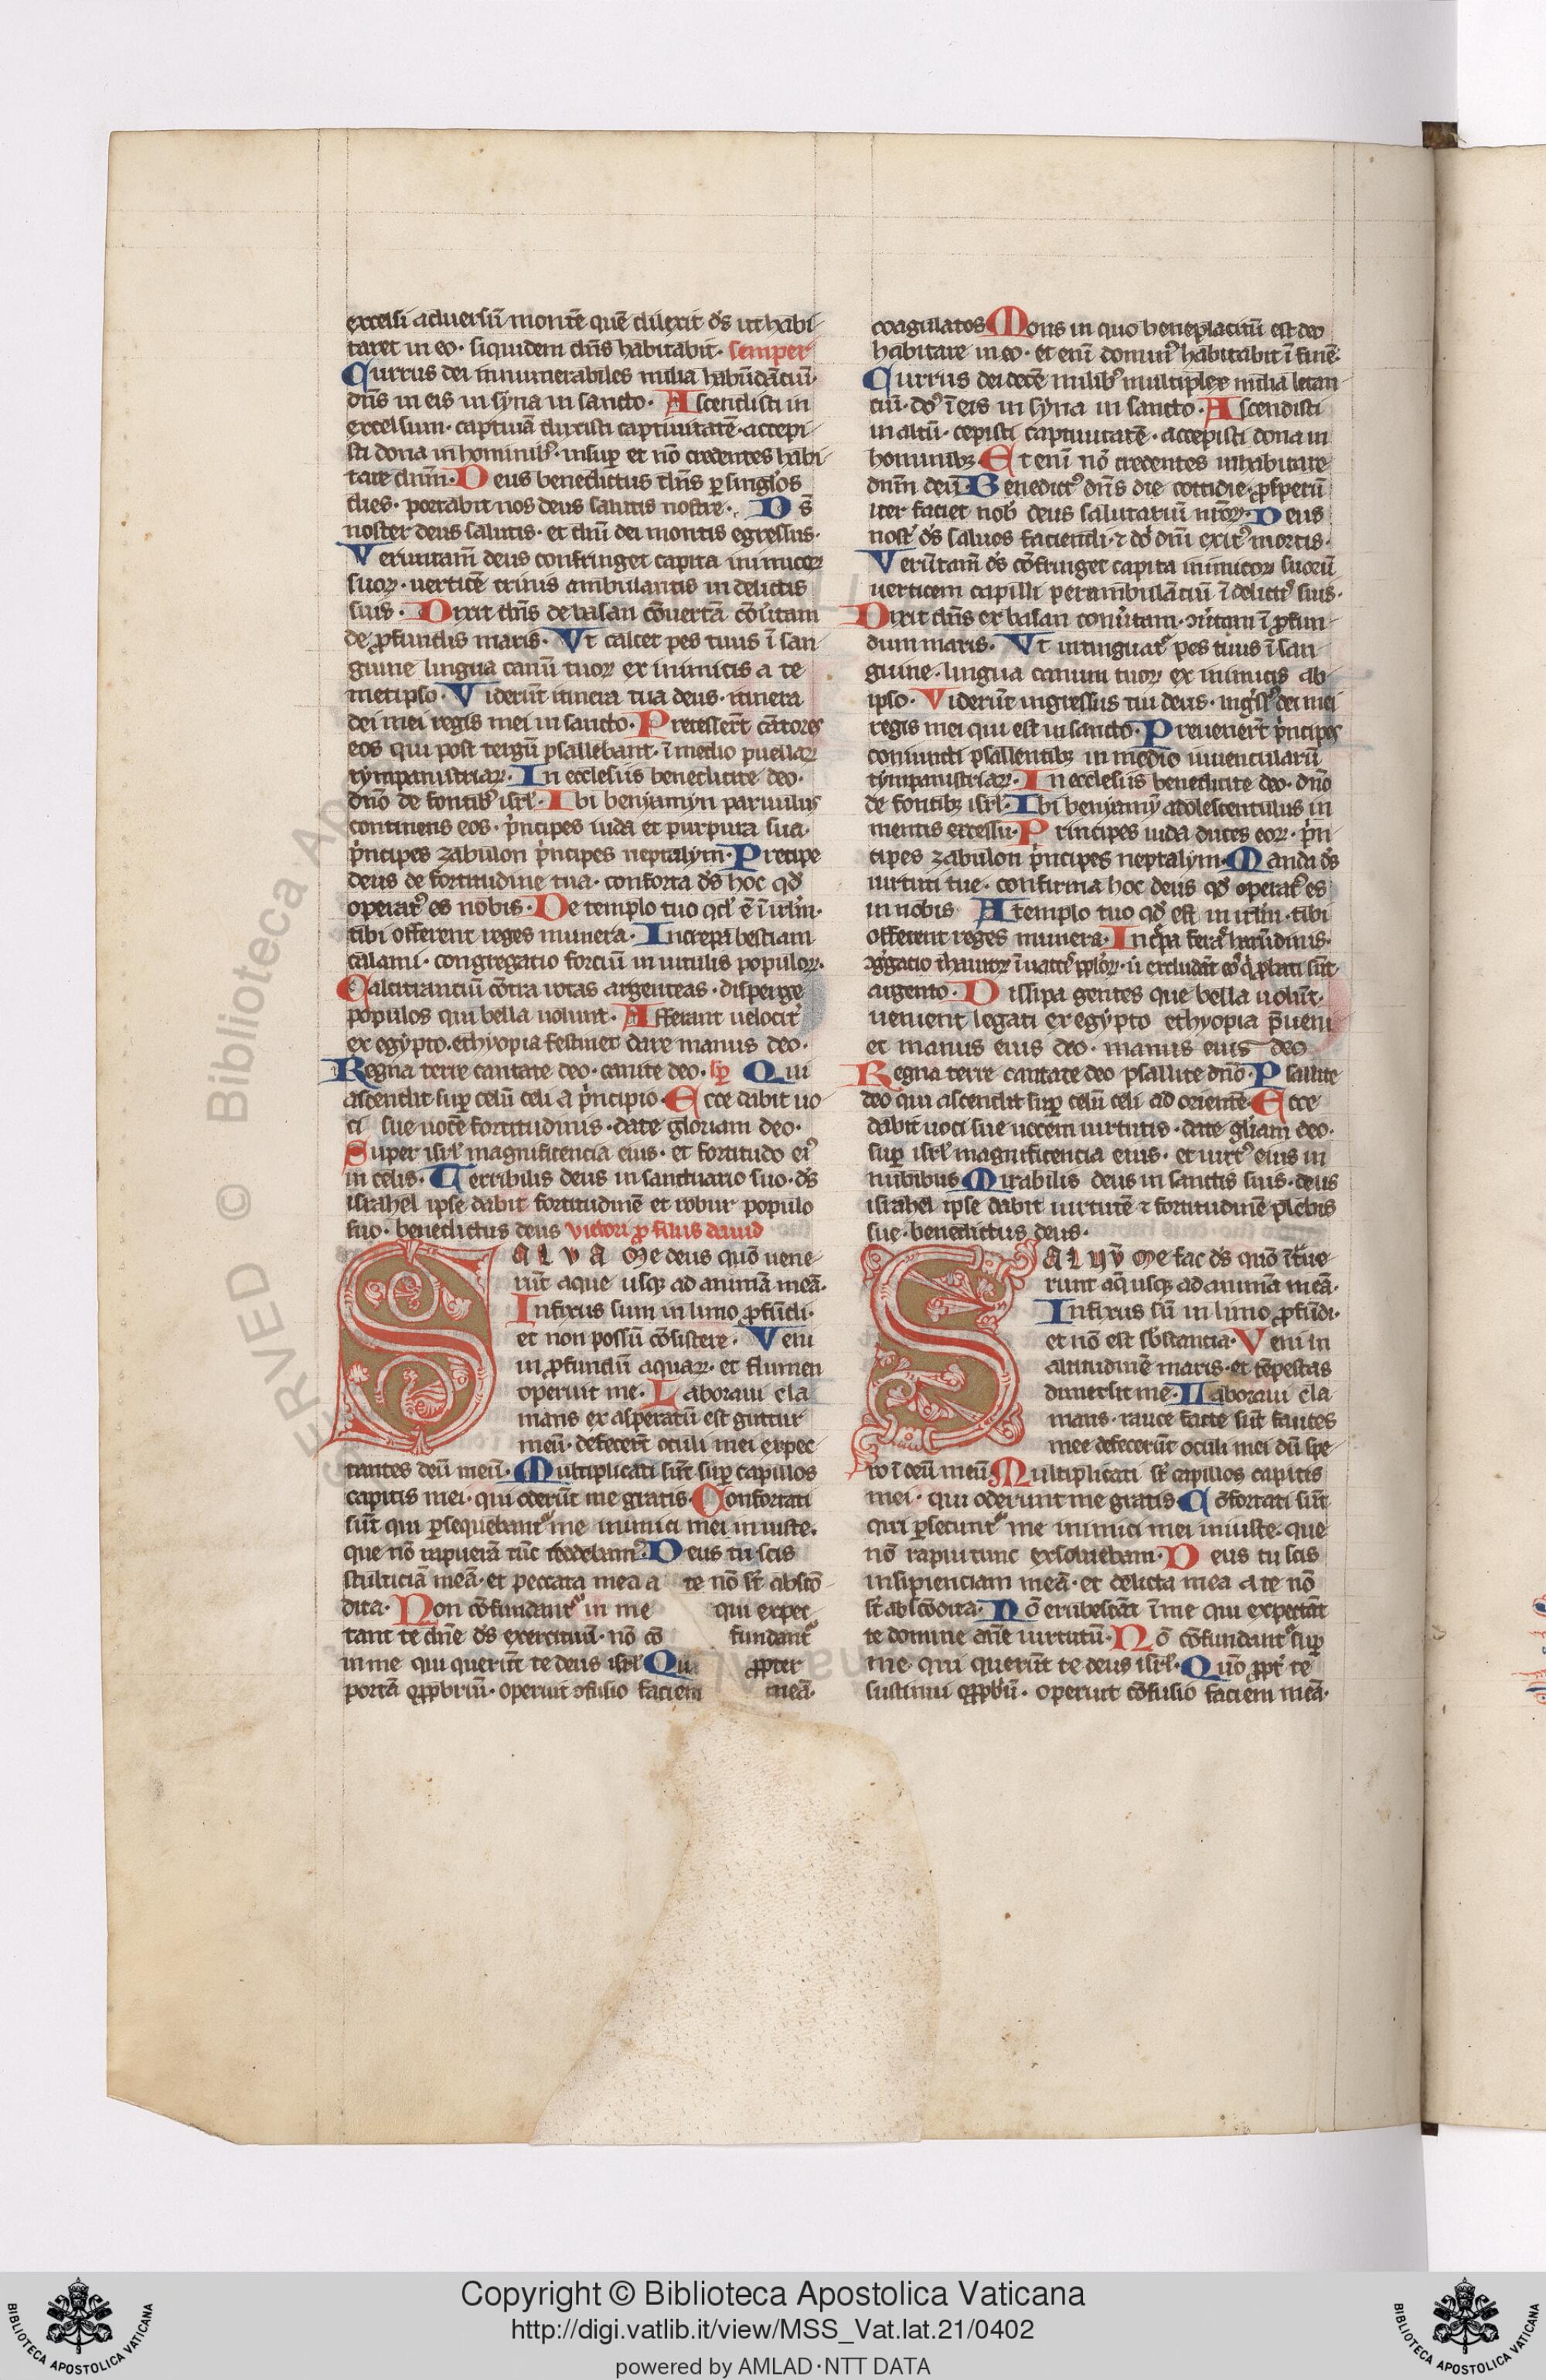 excelsi aduersū montē quē dilexit ds̄ ut habi
taret in eo· siquidem dn̄s habitabit· semper
Currus dei innumerabiles milia habūdāciū·
dn̄s in eis in syna in sancto· Ascendisti in
excelsum· captiuā duxisti captiuitatē· accepi
sti dona in hominibꝰ· insuꝑ et nō credentes habi
tare dnm̄· Deus benedictus dn̄s ꝑ singlos
dies· portabit nos deus salutis nostre· Ds̄
noster deus salutis· et dnī dei montis egressus·
Verumtam̄ deus confringet capita inimicoꝝ
suoꝝ· uerticē crinis ambulantis in delictis
suis· Dixit dn̄s de basan cōuertā cōu̾tam
de ꝓfundis maris· Vt calcet pes tuus ī san
guine lingua canū tuoꝝ ex inimicis a te
metipso· Viderūt itinera tua deus· itinera
dei mei regis mei in sancto· Precesserūt cātores
eos qui post tergū psallebant· ī medio puellaꝝ
tympanistriaꝝ· In ecclesiis benedicite deo·
dn̄o de fontibꝰ isrl̄· Ibi beniamyn paruulus
continens eos· pͥncipes iuda et purpura sua·
pͥncipes zabulon pͥncipes neptalym· Precipe
deus de fortitudine tua· conforta ds̄ hoc qd̄
operatꝰ es nobis· De templo tuo qd̄ ē ī irlm̄·
tibi offerent reges munera· Increpa bestiam
calami· congregatio forciū in uitulis populoꝝ·
Calcitranciū cōtra rotas argenteas· disperge
populos qui bella uolunt· Afferant uelociter
ex egypto· ethyopia festinet dare manus deo·
Regna terre cantate deo· canite deo· sꝑ Qui
ascendit suꝑ celū celi a pͥncipio· Ecce dabit uo
ci sue uocē fortitudinis· date gloriam deo·
Super isrl̄ magnificencia eius· et fortitudo eiꝰ
in celis· Terribilis deus in sanctuario suo· ds̄
israhel ipse dabit fortitudinē et robur populo
suo· benedictus deus victori ꝓ filiis dauid
SALVA me deus quō uene
rūt aque usqꝫ ad animā meā·
Infixus sum in limo ꝓfūdi·
et non possū cōsistere· Veni
in ꝓfundū aquaꝝ· et flumen
operuit me· Laboraui cla
mans exasperatū est guttur
meū· defecerūt oculi mei expec
tantes deū meū· Multiplicati sūt suꝑ capillos
capitis mei· qui oderūt me gratis· Confortati
sūt qui ꝑsequebantᷣ me inimici mei iniuste·
que nō rapuerā tūc reddebam· Deus tu scis
stulticiā meā· et peccata mea a te nō st̄ abscō
dita· Non cōfundantᷣ in me qui expec
tant te dn̄e ds̄ exercituū· nō cō fundantᷣ
in me qui querūt te deus isrl̄ Qui ꝓpter
portā opꝓbriū· operuit ꝯfusio faciem meā·
coagulatos Mons in quo beneplacitū est deo
habitare in eo· et enī dominꝰ habitabit ī finē·
Currus dei decē milibꝰ multiplex milia letan
ciū· dn̄s ī eis in syna in sancto· Ascendisti
in altū· cepisti captiuitatē· accepisti dona in
hominibꝫ Et enī nō credentes inhabitare
dnm̄ deū· Benedictꝰ dn̄s die cottidie· ꝓsperū
iter faciet nob̄ deus salutariū nr̄oꝝ· Deus
nost̾ ds̄ saluos faciendi· ⁊ dn̄i dnī exitꝰ mortis·
Verūtam̄ ds̄ cōfringet capita inimicoꝝ suoꝝ
uerticem capilli perambulāciū ī delictis suis·
Dixit dn̄s ex basan conu̾tam· ꝯu̾tam ī ꝓfun
dum maris· Vt intinguatᷣ pes tuus ī san
guine· lingua canum tuoꝝ ex inimicis ab
ipso· Viderūt ingressus tui deus· ingr̄sꝰ dei mei
regis mei qui est in sancto· Preuenerūt pͥncipes
coniuncti psallentibꝫ in medio iuuenculaꝝ
tympanistriaꝝ· In ecclesiis benedicite deo· dn̄o
de fontibꝫ isrl̄· Ibi beniamȳ adolescentulus in
mentis excessu· Principes iuda duces eoꝝ· pͥn
cipes zabulon pͥncipes neptalym· Manda ds̄
uirtuti tue· confirma hoc deus qd̄ operatꝰ es
in nobis A templo tuo qd̄ est in irlm̄· tibi
offerent reges munera· Incͤpa feras harūdinis·
ꝯgͤgatio thauroꝝ ī uacc̄ ppl̄oꝝ· ut excludāt eos qͥ ꝓbati sūt
argento· Dissipa gentes que bella uolūt·
uenient legati ex egypto ethyopia p̄ueni
et manus eius deo· manus eius deo
Regna terre cantate deo psallite dn̄o· Psallite
deo qui ascendit suꝑ celū celi ad orientē· Ecce
dabit uoci sue uocem uirtutis· date gl̄iam deo·
suꝑ isrl̄ magnificencia eius· et uirtꝰ eius in
nubibus Mirabilis deus in sanctis suis· deus
israhel ipse dabit uirtutē ⁊ fortitudinē plebis
sue· benedictus deus·
SALVV̄ me fac ds̄ quō ītͣue
runt aq̄ usqꝫ ad animā meā·
Infixus sū in limo ꝓfūdi·
et nō est sb̄stancia· Veni in
altitudinē maris· et tēpestas
dimersit me· Laboraui cla
mans· rauce facte sūt fauces
mee defecerūt oculi mei dū spe
ro ī deū meū Multiplicati st̄ capillos capitis
mei· qui oderunt me gratis· Cōfortati sūt
qui ꝑsecuntᷣ me inimici mei iniuste· que
nō rapui tunc exsoluebam· Deus tu scis
insipienciam meā· et delicta mea a te nō
st̄ abscōdita· Nō erubescāt ī me qui expectāt
te domine dn̄e uirtutū· Nō cōfundantᷣ suꝑ
me qui querūt te deus isrl̄· Quō ꝓpt̾ te
sustinui opꝓbū· operuit cōfusio faciem meā·
RVED © Biblioteca Ap
Copyright © Biblioteca Apostolica Vaticana
http://digi.vatlib.it/view/MSS_Vat.lat.21/0402
powered by AMLAD·NTT DATA
BIBLIOTECA APOSTOLICA VATICANA
BIBLIOTECA APOSTOLICA VATICANA